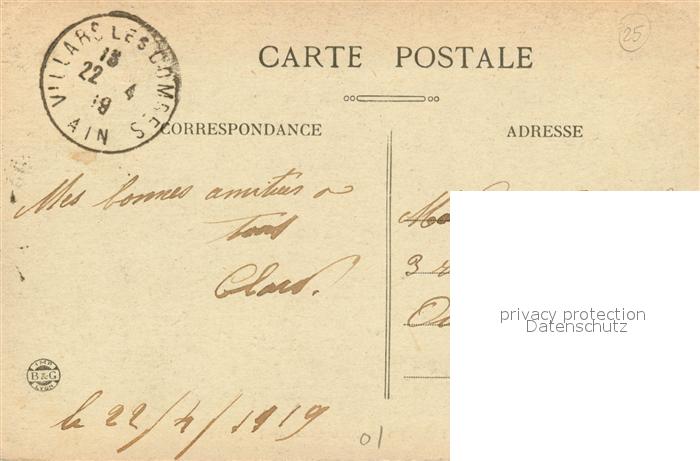 25
CARTE POSTALE
VILLARS LES DOMBES
18
22 4
19
AIN
CORRESPONDANCE
ADRESSE
Mes bonnes amitiés a
tous
3
privacy protection
Datenschutz
IMP.
B&G
LYON
le 22/4/1919
01